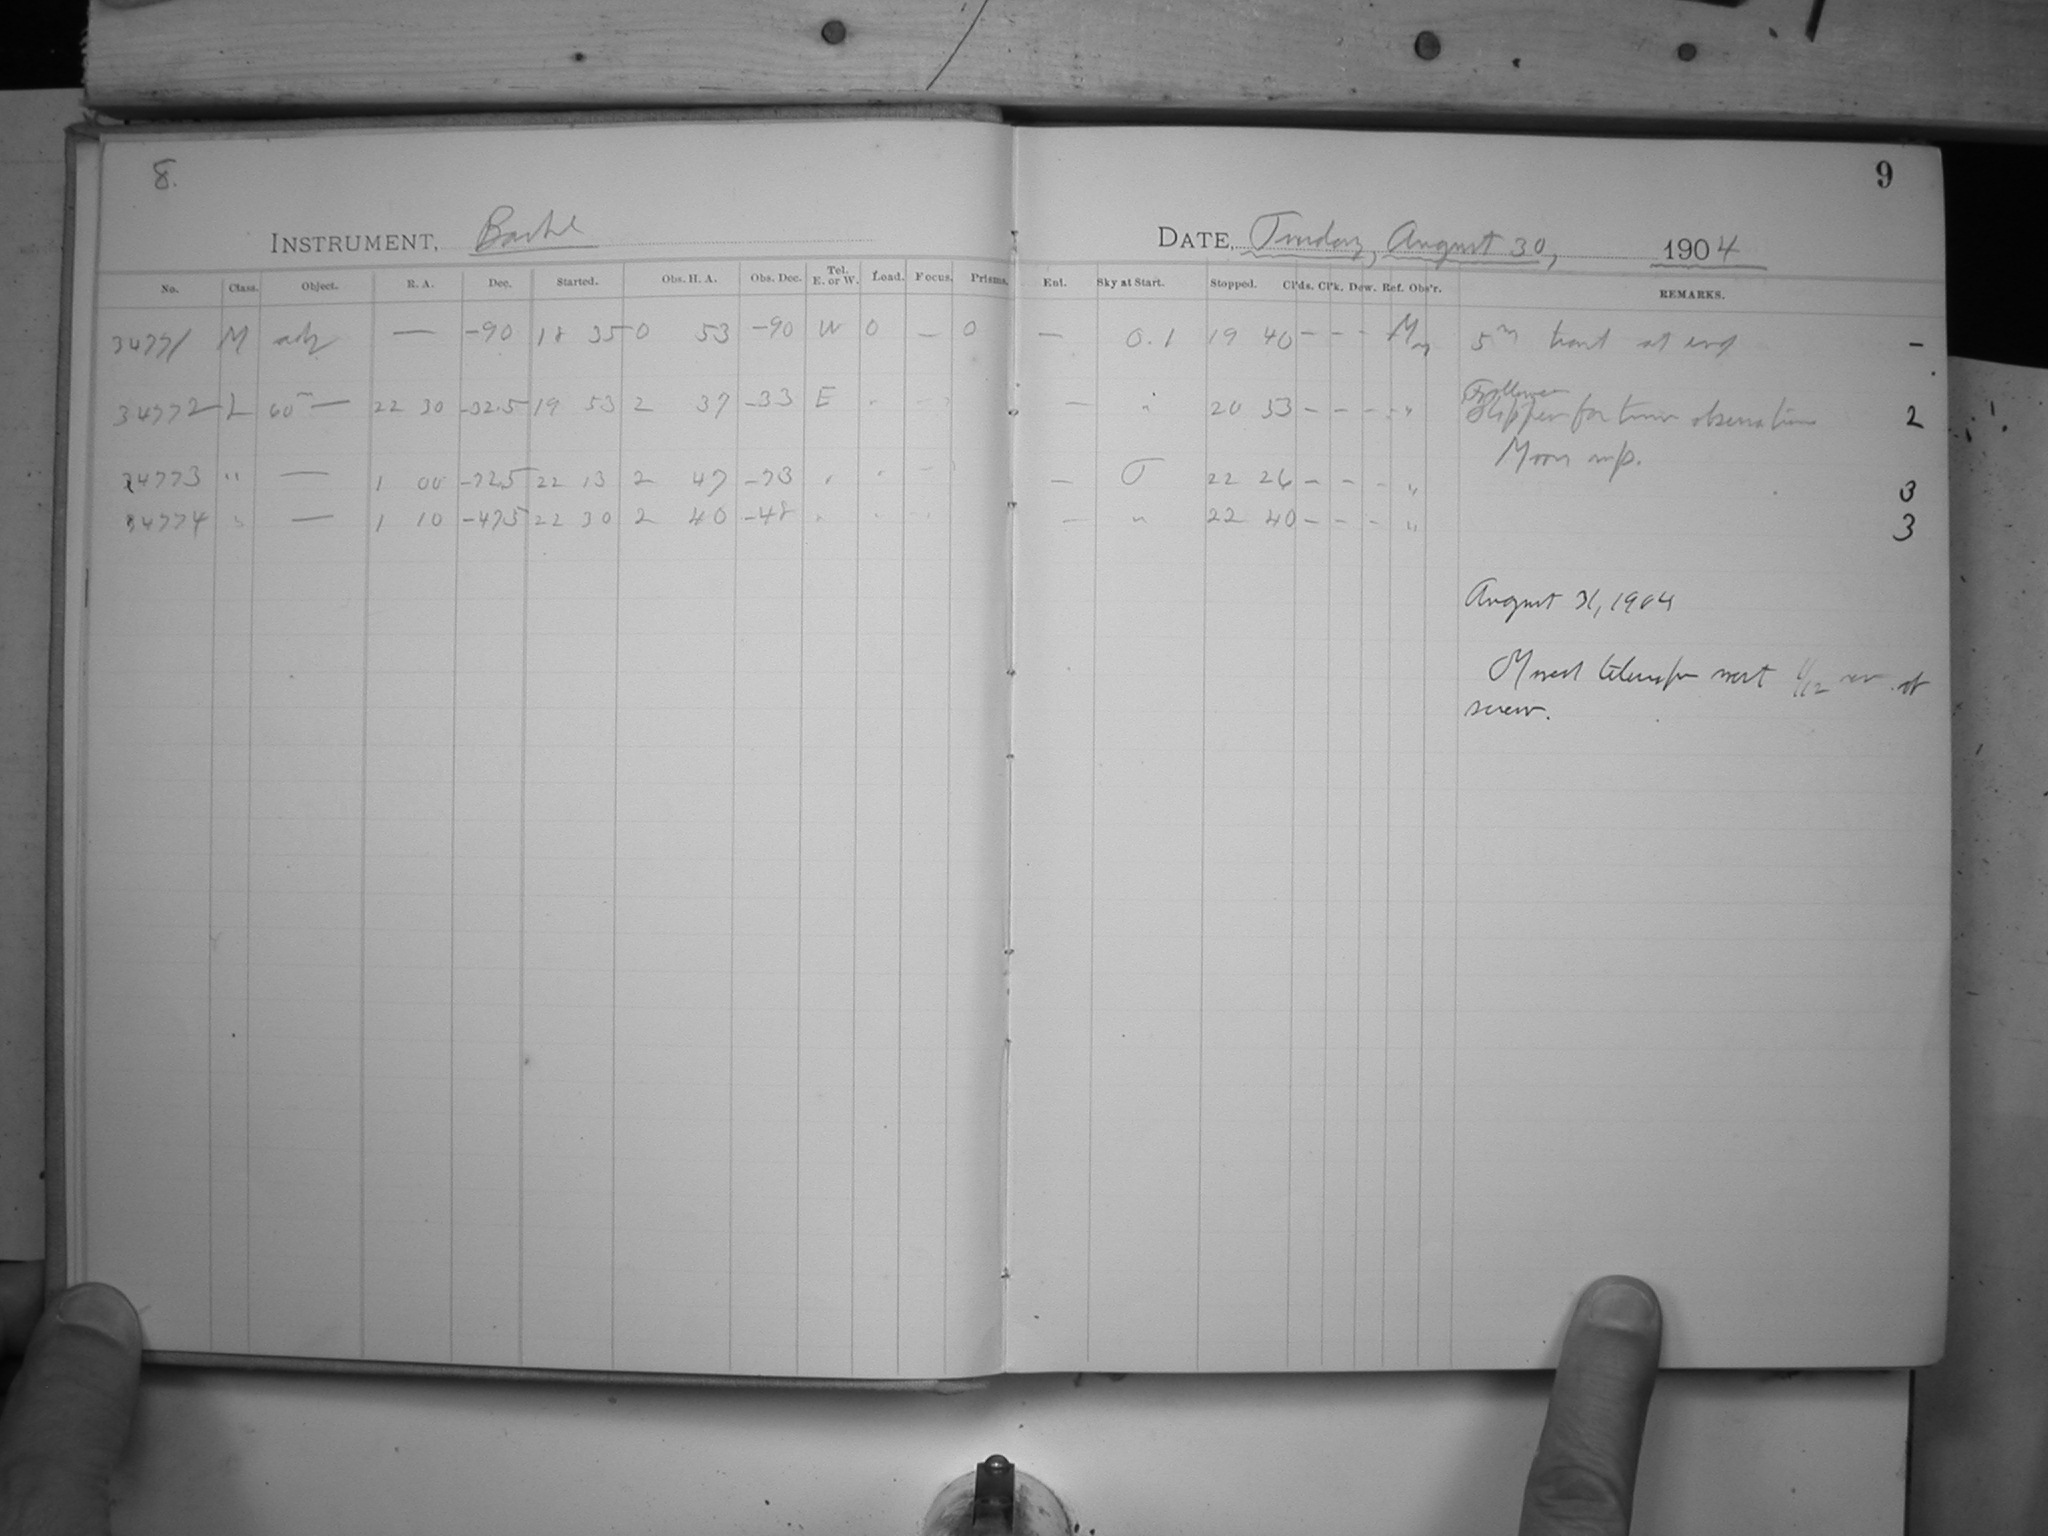 8.
9
INSTRUMENT, Bache
DATE, Tuesday, August 30, 1904
No. Class. Object. R. A. Dec. Started. Obs. H. A. Obs. Dec. Tel. E. or W. Load. Focus. Prisms. Ent. Sky at Start. Stopped. Cl'ds. Cl'k. Dew. Ref. Obs'r. REMARKS.
34771 M adj — -90 18 35 0 53 -90 W 0 — 0 — 0.1 19 40 - - - 5m trail at end -
34772 L 60m — 22 30 -32.5 19 53 2 37 -33 E " - " — " 20 53 - - - " Follower
slipped for time observations 2
Moon up.
34773 " — 1 00 -72.5 22 13 2 47 -73 " " - " — 0 22 26 - - - " 3
34774 " — 1 10 -47.5 22 30 2 40 -48 " " - " — " 22 40 - - - " 3
August 31, 1904
Moved telescope west 1/12 rev of
screw.